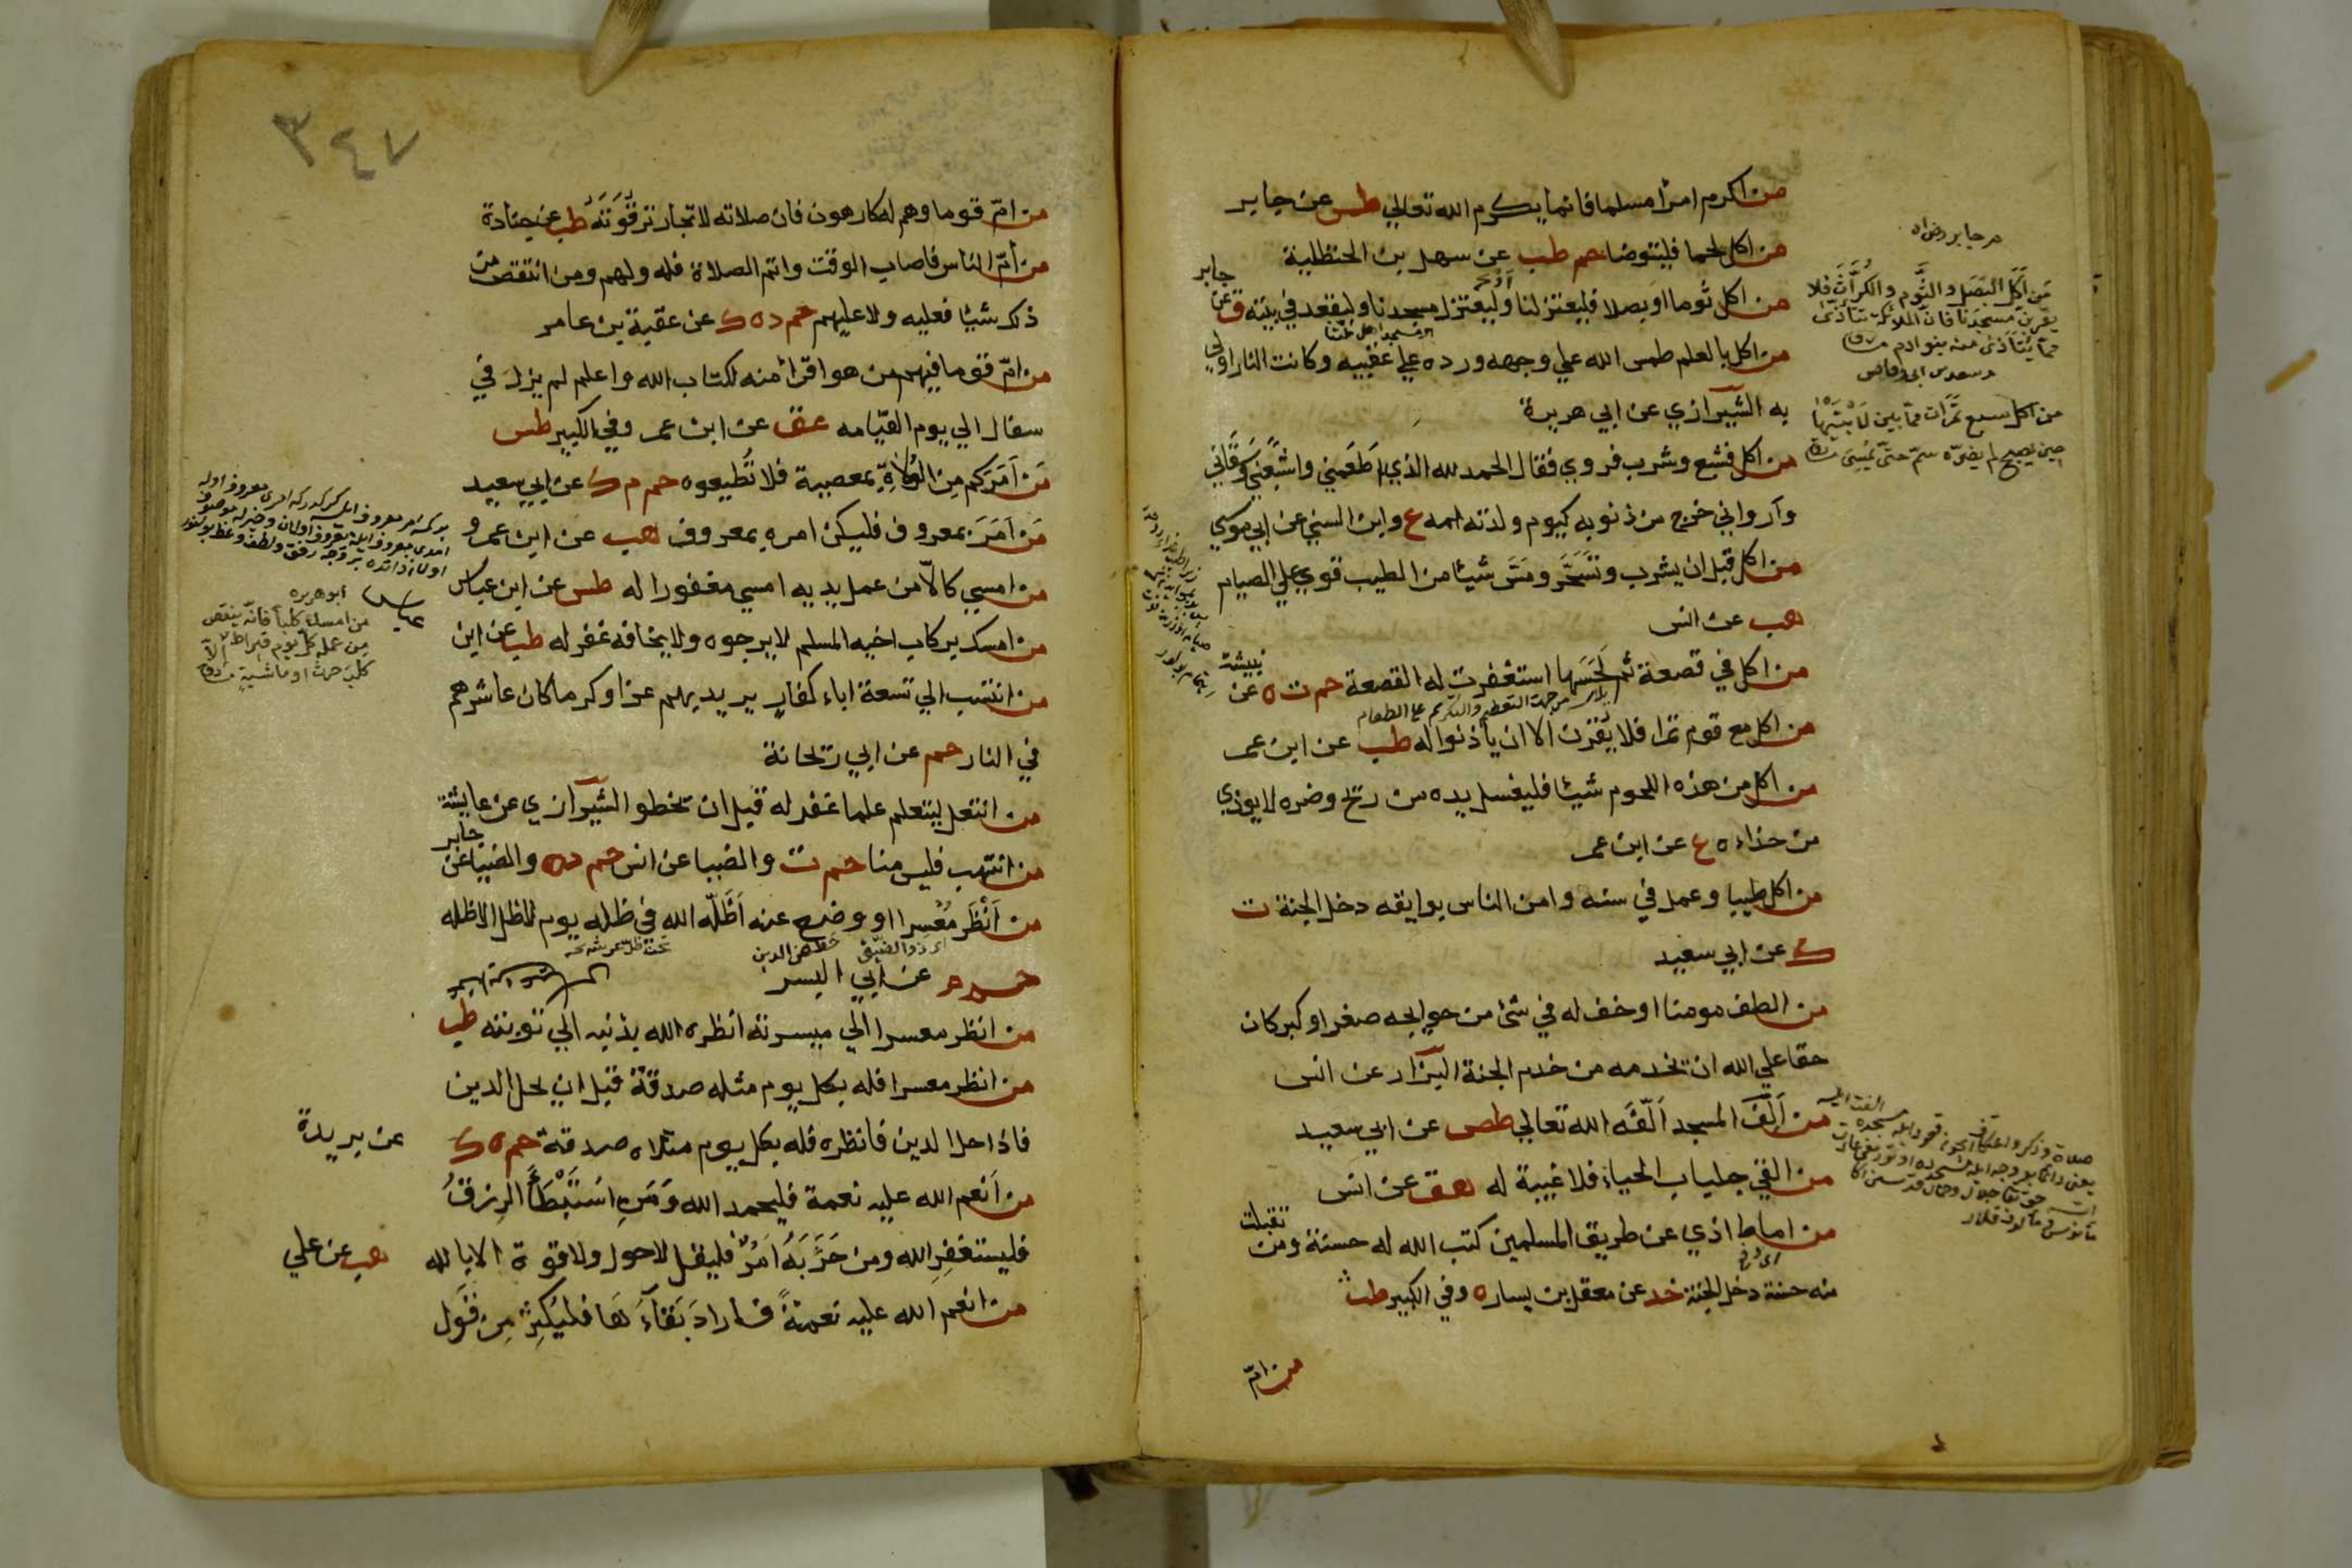 من اكرم امرا مسلما فانما يكرم الله تعالي طس عن جابر
من اكل لحما فليتوضا حم طب عن سهل بن الحنظلية
من اكل ثوما او بصلا فليعتزلنا وليعتزل مسجدنا وليقعد في بيته ق عن جابر
من اكل بالعلم طمس الله علي وجهه ورده علي عقبيه وكانت النار اولي
به الشيرازي عن ابي هريرة
من اكل فشبع وشرب فروي فقال الحمد لله الذي اطعمني واشبعني وسقاني
وارواني خرج من ذنوبه كيوم ولدته امه ع وابن السني عن ابي موسي
من اكل قبل ان يشرب وتسحر ومس شيئا من الطيب قوي علي الصيام
هب عن انس
من اكل في قصعة ثم لحسها استغفرت له القصعة حم ت ه عن نبيشة
من اكل مع قوم تمرا فلا يقرن الا ان ياذنوا له طب عن ابن عمر
من اكل من هذه اللحوم شيئا فليغسل يده من ريح وضره لا يوذي
من حذاءه ع عن ابن عمر
من اكل طيبا وعمل في سنه وامن الناس بوايقه دخل الجنة ت
ك عن ابي سعيد
من الطف مومنا او خف له في شئ من حوايجه صغر او كبر كان
حقا علي الله ان يخدمه من خدم الجنة البزار عن انس
من الف المسجد الفه الله تعالي طص عن ابي سعيد
من القي جلباب الحياء فلا غيبة له هق عن انس
من اماط اذي عن طريق المسلمين كتب الله له حسنة ومن تقبلت
منه حسنة دخل الجنة خد عن معقل بن يساره وفي الكبير طب
من ام
من جابر رضي اه
من اكل البصل والثوم والكراث فلا
يقربن مسجدنا فان الملائكة تتأذى
مما يتأذى منه بنو ادم
وسعد بن ابي وقاص
من اكل سبع تمرات مما بين لابتيها
حين يصبح لم يضره سم حتى يمسي
٣٤٧
من ام قوما وهم له كارهون فان صلاته لا تجاوز ترقوته طب عن جنادة
من أم الناس فاصاب الوقت واتم الصلاة فله ولهم ومن انتقص من
ذلك شيئا فعليه ولا عليهم حم د ه ك عن عقبة بن عامر
من ام قوما فيهم من هو اقرأ منه لكتاب الله واعلم لم يزل في
سفال الي يوم القيامه عق عن ابن عمر وفي الكبير طس
من امركم من الولاة بمعصية فلا تطيعوه حم م ك عن ابي سعيد
من امر بمعروف فليكن امره بمعروف هب عن ابن عمرو
من امسي كالا من عمل يديه امسي مغفورا له طس عن ابن عباس
من امسك بركاب اخيه المسلم لا يرجوه ولا يخافه غفر له طب عن ابن
عباس
من انتسب الي تسعة اباء كفار يريد بهم عزا وكرما كان عاشرهم
في النار حم عن ابي ريحانة
من انتعل ليتعلم علما غفر له قبل ان يخطو الشيرازي عن عايشة
من انتهب فليس منا حم ت والضيا عن انس حم د ه والضيا عن جابر
من أنظر معسرا او وضع عنه أظله الله في ظله يوم لا ظل الا ظله
حم م عن ابي اليسر
من انظر معسرا الي ميسرته انظره الله بذنبه الي توبته طب
من انظر معسرا فله بكل يوم مثله صدقة قبل ان يحل الدين
فاذا حل الدين فانظره فله بكل يوم مثلاه صدقة حم ه ك عن بريدة
من أنعم الله عليه نعمة فليحمد الله ومن استبطأ الرزق
فليستغفر الله ومن حزبه امر فليقل لا حول ولا قوة الا بالله هب عن علي
من انعم الله عليه نعمة فاراد بقاء لها فليكثر من قول
ابو هريره
من امسك كلبا فانه ينقص
من عمله كل يوم قيراط الا
كلب حرث او ماشية